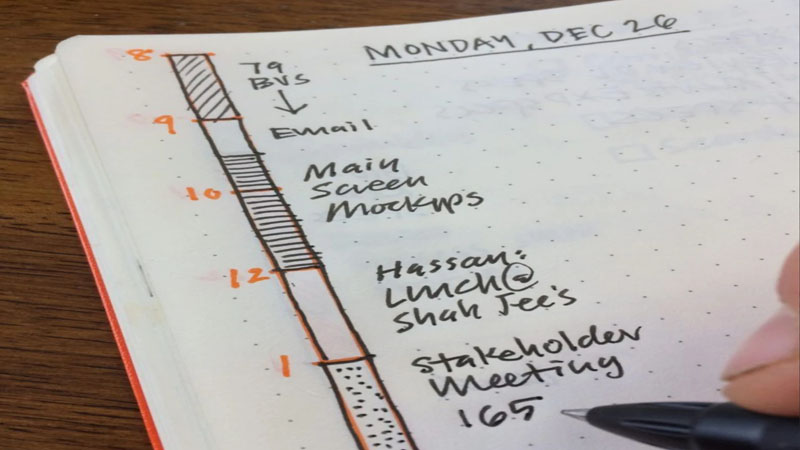 MONDAY, DEC 26
8
79
BVS
9
Email
Main
10
Screen
Mockups
12
Hassan:
Lunch@
Shah Jee's
1
Stakeholder
Meeting
165